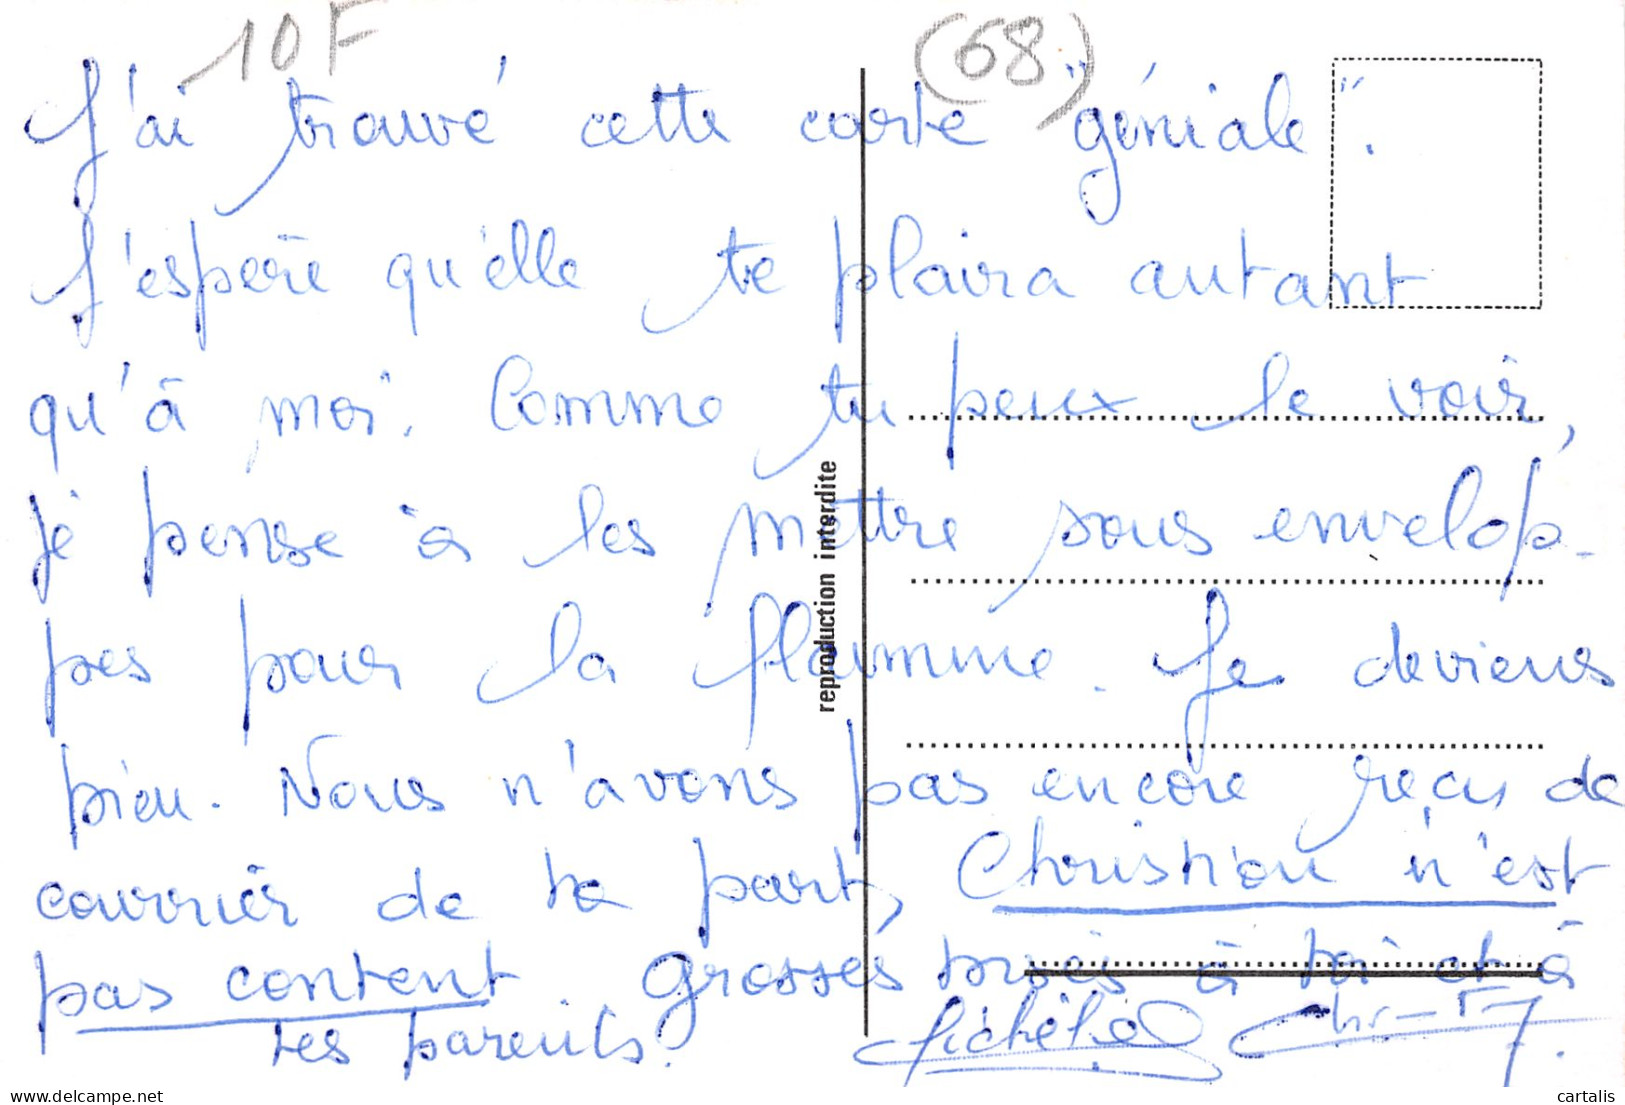 10F
(68)
J'ai trouvé cette carte "géniale".
J'espère qu'elle te plaira autant
qu'à moi. Comme tu peux le voir,
je pense à les mettre sous envelop-
pes pour la flamme. Je deviens
pieu. Nous n'avons pas encore reçu de
courrier de ta part, Christian n'est
pas content Grosses bises à toi et à
tes parents.
Michèle
reproduction interdite
www.delcampe.net
cartalis